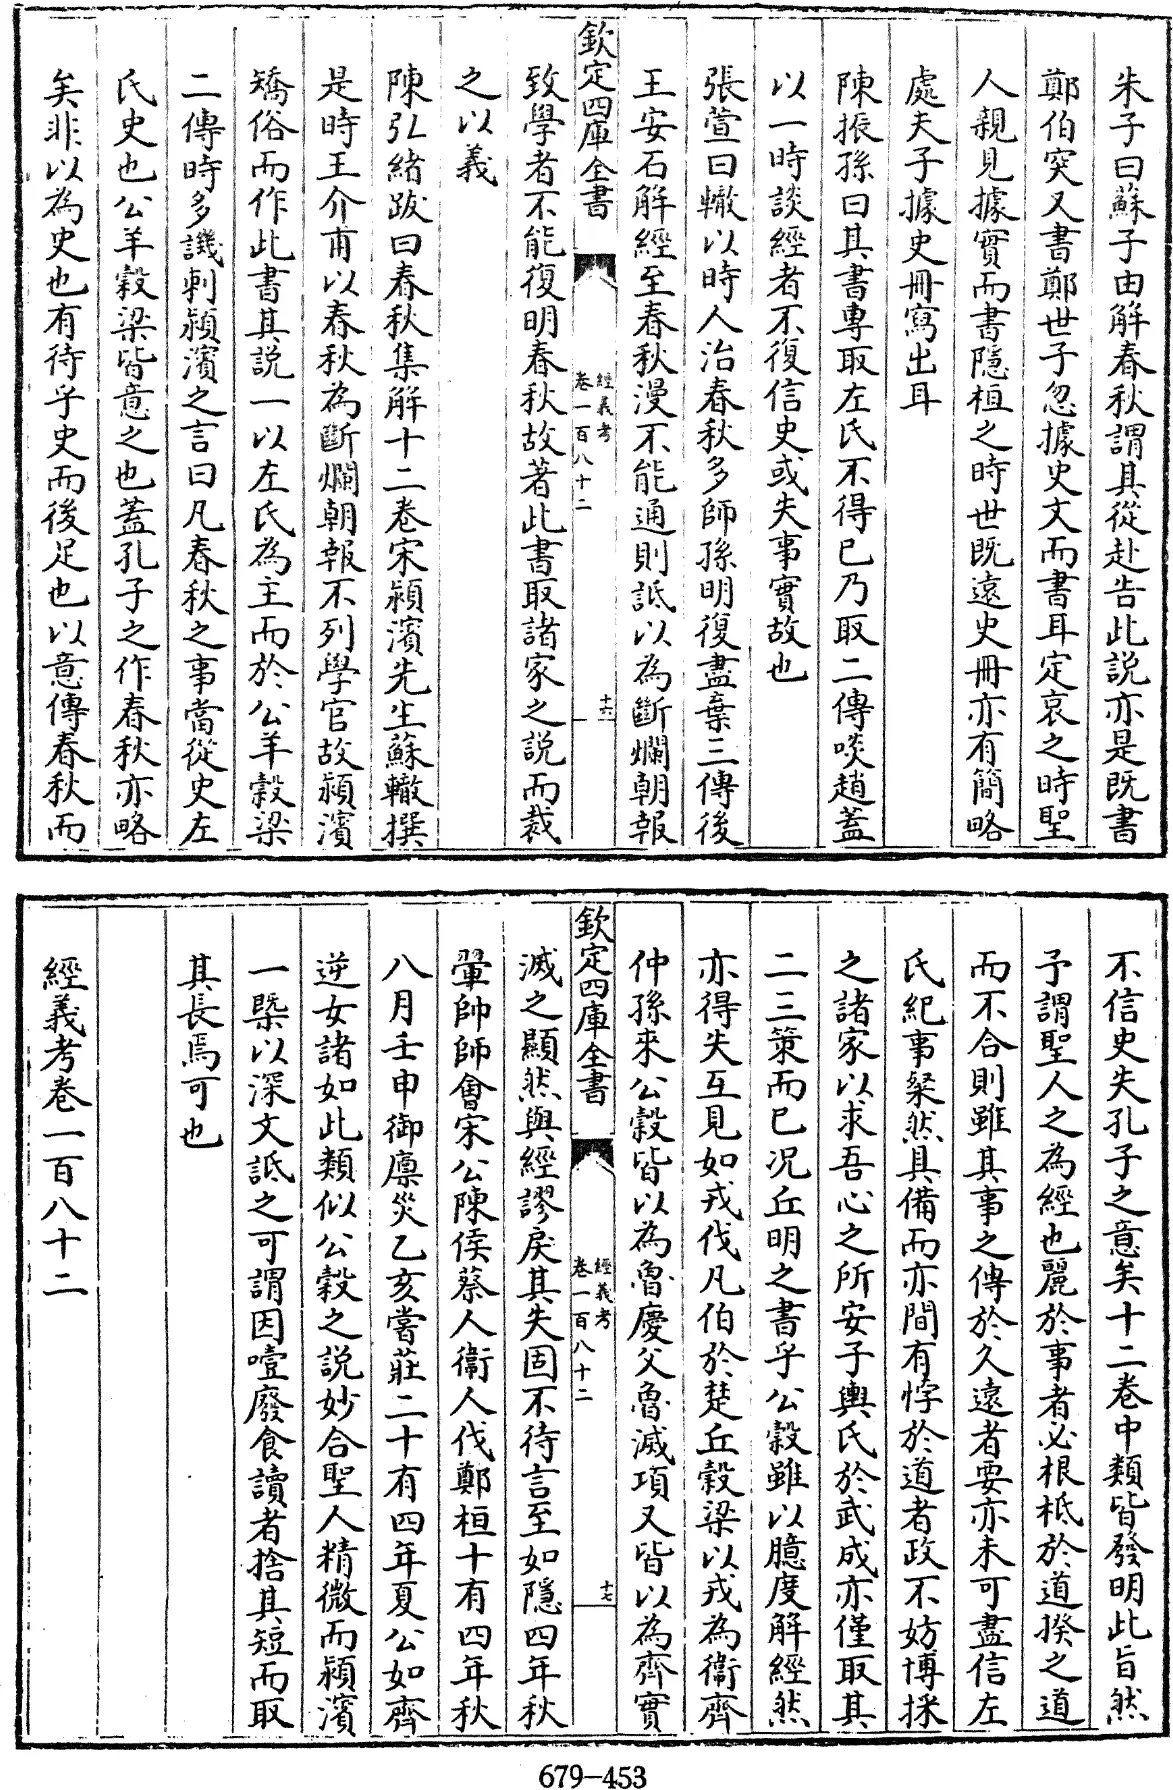 朱子曰蘇子由解春秋謂其從赴告此説亦是既書
鄭伯突又書鄭世子忽據史文而書耳定哀之時聖
人親見據實而書隱桓之時世既遠史冊亦有簡略
處夫子據史冊寫出耳
陳振孫曰其書專取左氏不得已乃取二傳啖趙蓋
以一時談經者不復信史或失事實故也
張萱曰轍以時人治春秋多師孫明復盡棄三傳後
王安石解經至春秋漫不能通則詆以為斷爛朝報
欽定四庫全書
經義考
卷一百八十二
十六
致學者不能復明春秋故著此書取諸家之説而裁
之以義
陳弘緒跋曰春秋集解十二卷宋潁濱先生蘇轍撰
是時王介甫以春秋為斷爛朝報不列學官故潁濱
矯俗而作此書其説一以左氏為主而於公羊穀梁
二傳時多譏刺潁濱之言曰凡春秋之事當從史左
氏史也公羊穀梁皆意之也蓋孔子之作春秋亦略
矣非以為史也有待乎史而後足也以意傳春秋而
不信史失孔子之意矣十二卷中類皆發明此旨然
予謂聖人之為經也麗於事者必根柢於道揆之道
而不合則雖其事之傳於久遠者要亦未可盡信左
氏紀事粲然具備而亦間有悖於道者政不妨博採
之諸家以求吾心之所安子輿氏於武成亦僅取其
二三策而已况丘明之書乎公穀雖以臆度解經然
亦得失互見如戎伐凡伯於楚丘穀梁以戎為衞齊
仲孫來公穀皆以為魯慶父魯滅項又皆以為齊實
欽定四庫全書
經義考
卷一百八十二
十七
滅之顯然與經謬戾其失固不待言至如隱四年秋
翬帥師會宋公陳侯蔡人衞人伐鄭桓十有四年秋
八月壬申御廪災乙亥嘗莊二十有四年夏公如齊
逆女諸如此類似公穀之説妙合聖人精微而潁濱
一槩以深文詆之可謂因噎廢食讀者捨其短而取
其長焉可也
經義考卷一百八十二
679-453